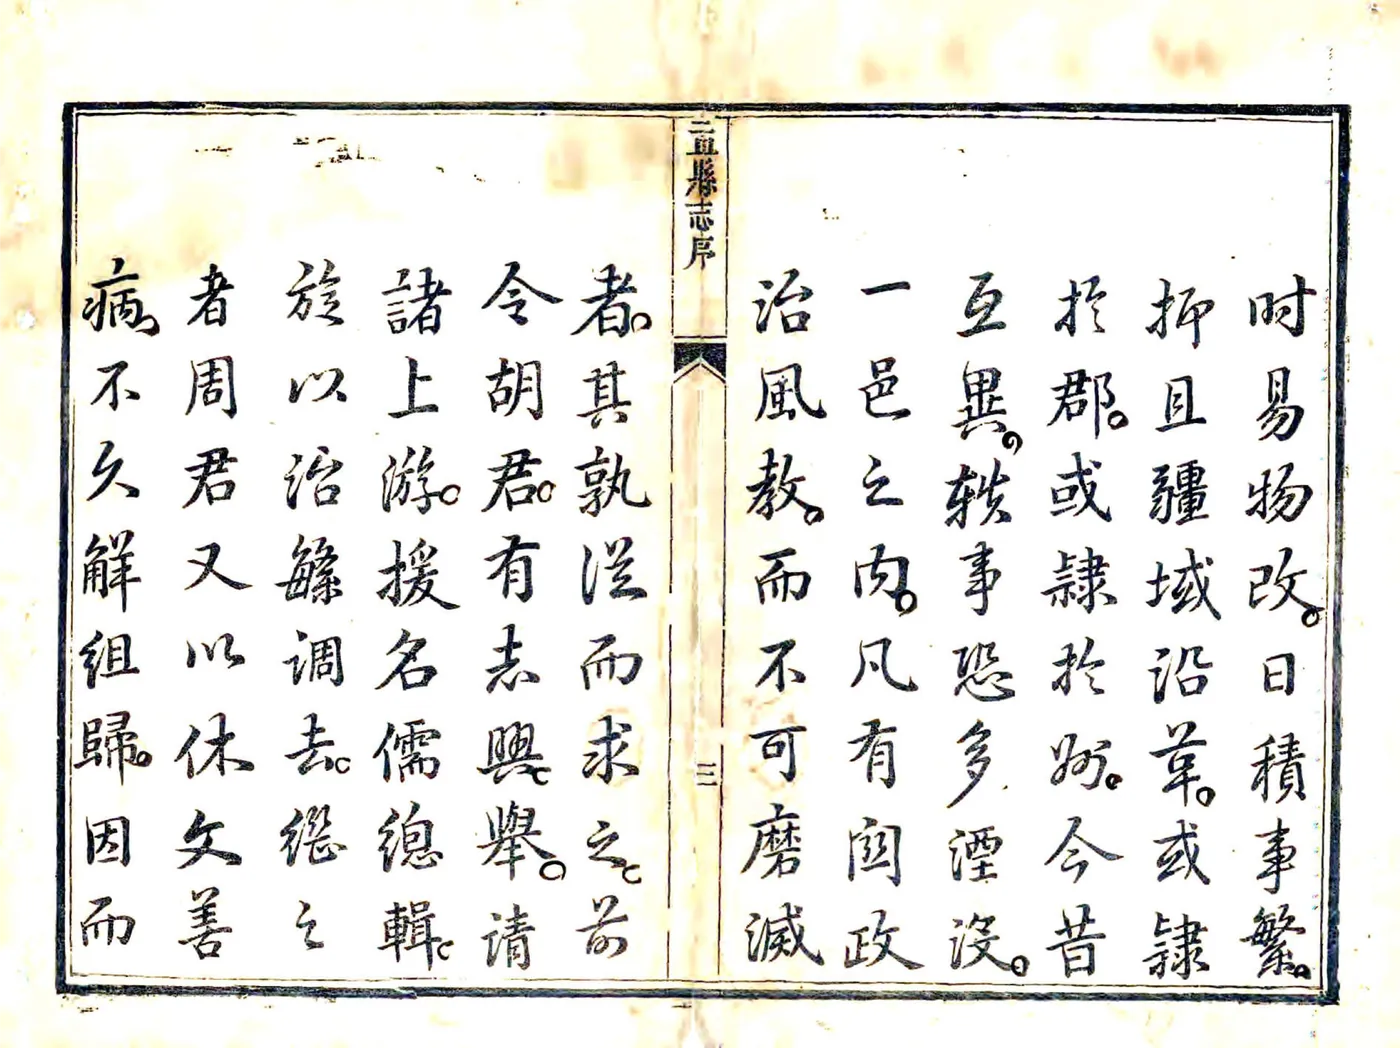 时易物改。日積事繁。
抑且疆域沿革。或隸
於郡。或隸於州。今昔
互異。軼事恐多湮沒。
一邑之內。凡有関政
治風教。而不可磨滅
縣志序
三
者。其孰從而求之。前
令胡君。有志興舉。請
諸上游。援名儒總輯。
旋以治繁調去。繼之
者周君又以休文善
病。不久解組歸。因而